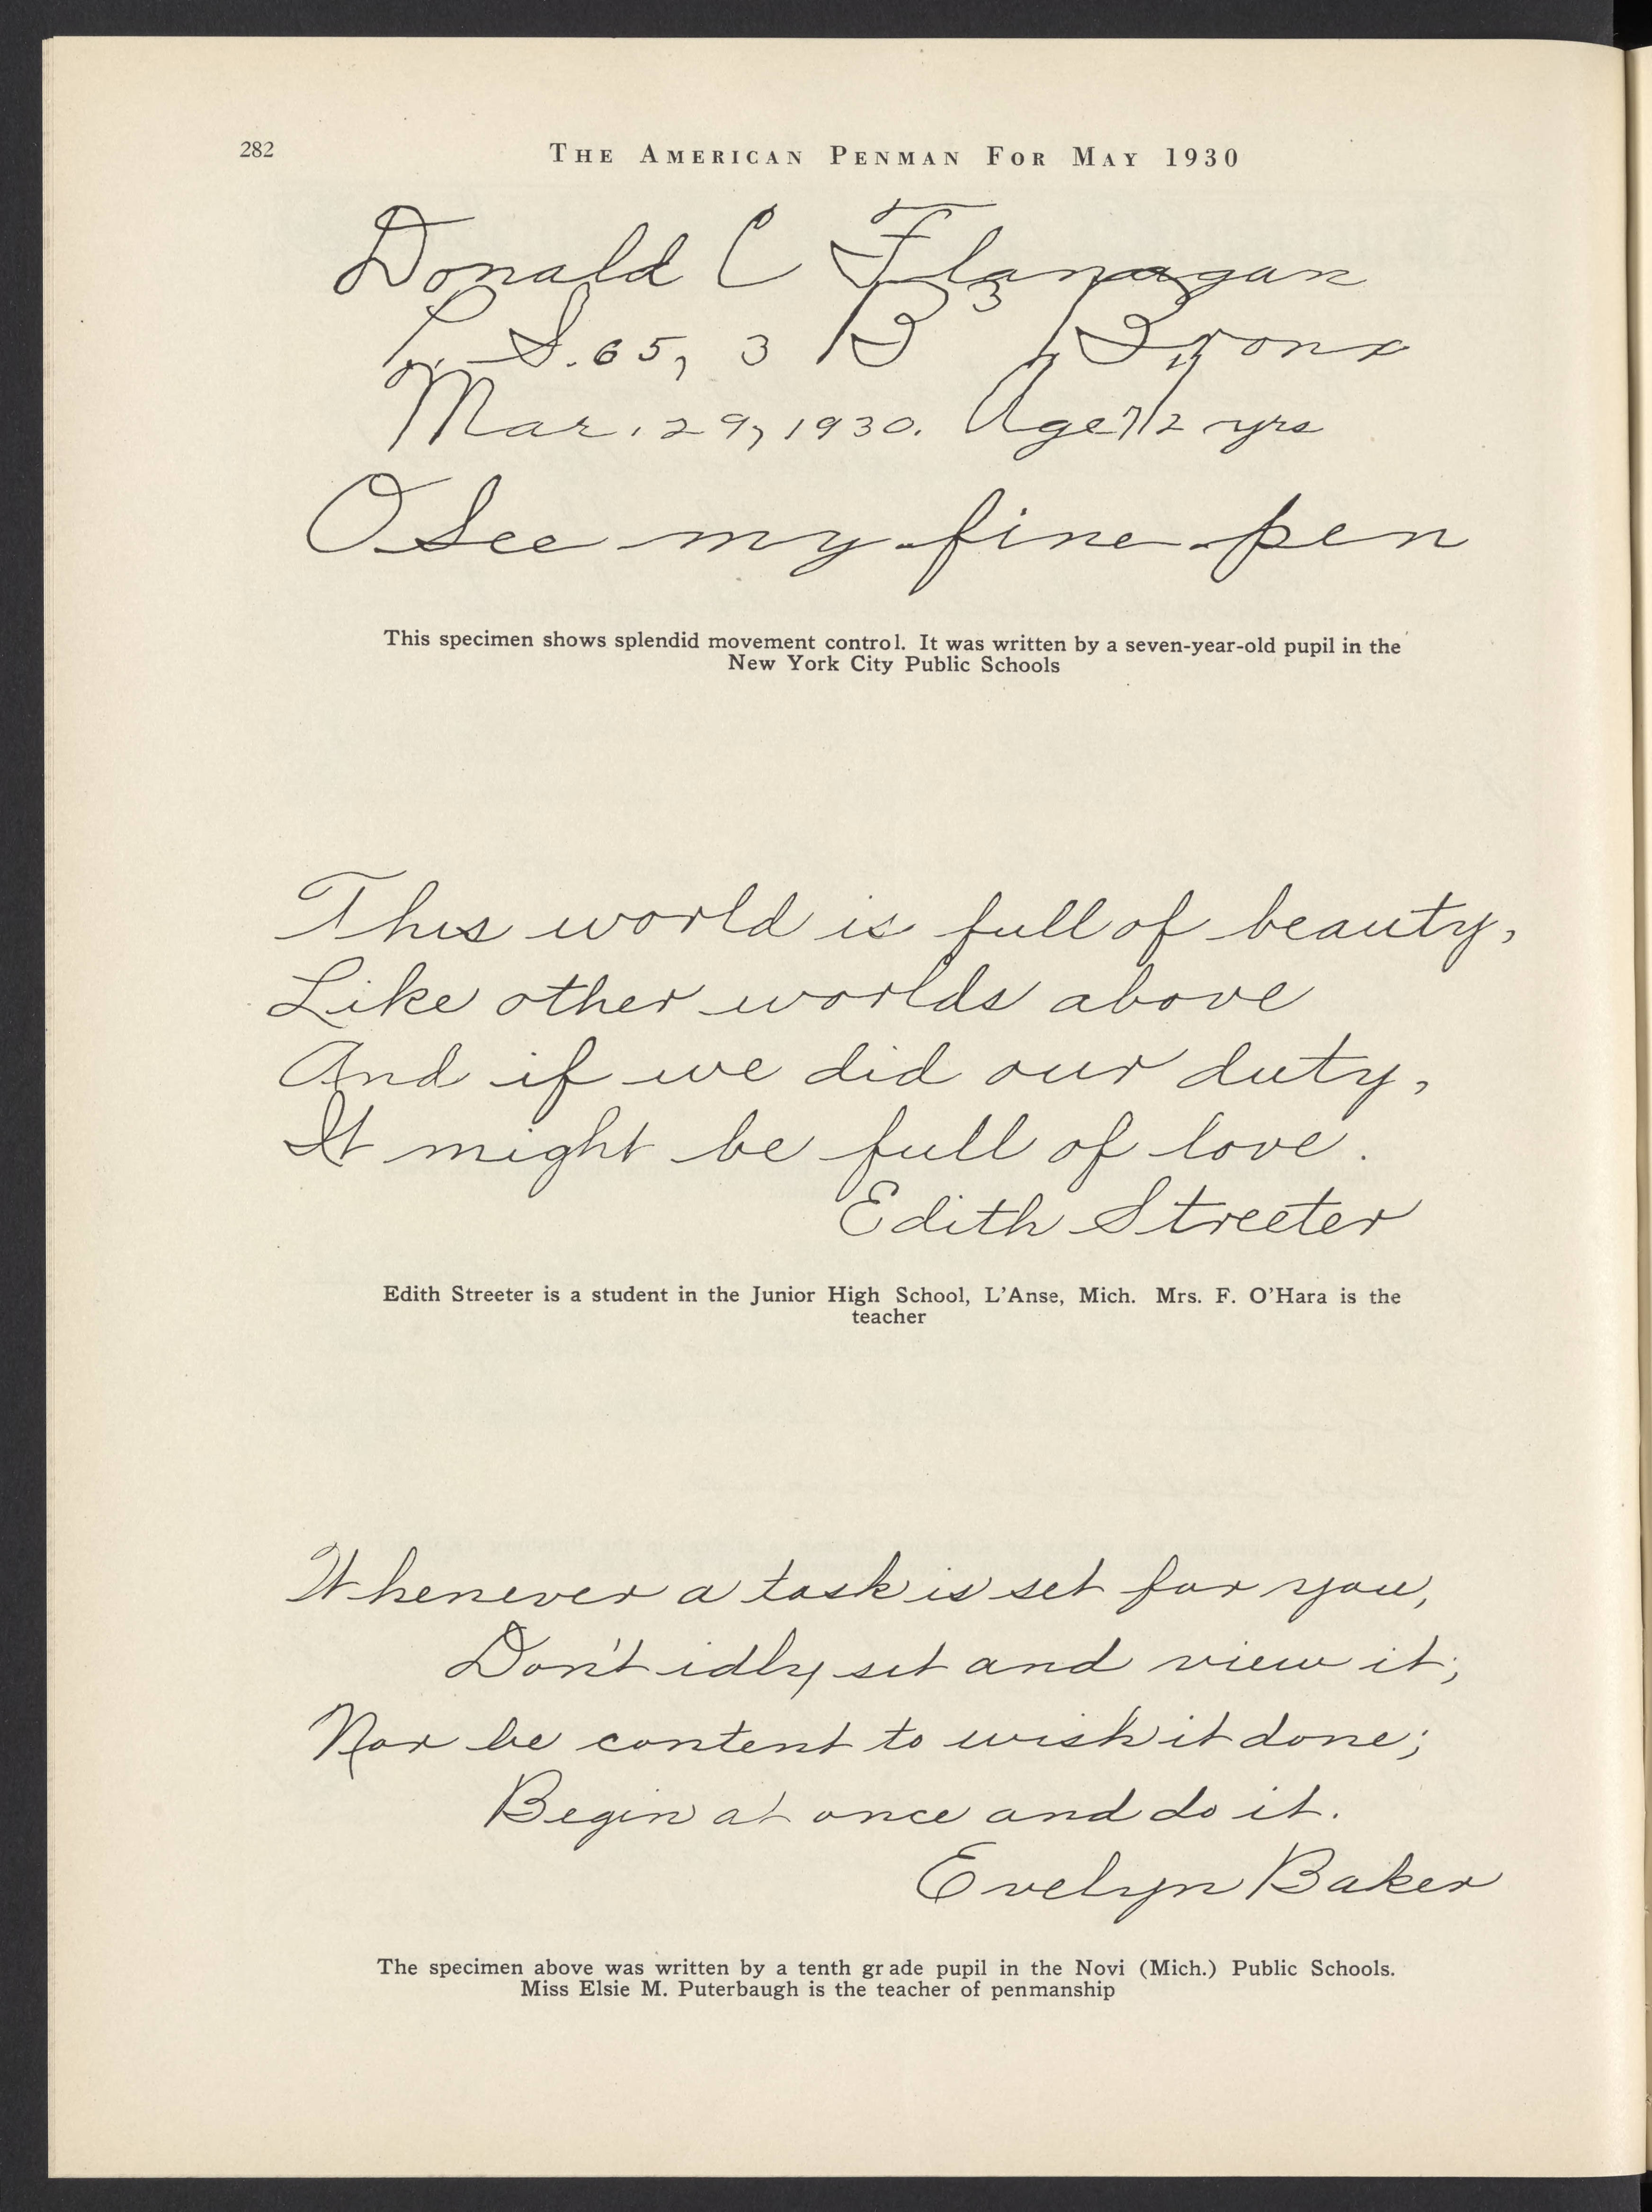 282
THE AMERICAN PENMAN FOR MAY 1930
Donald C Flanagan
P. S. 65, 3 B³ Bronx
Mar. 29, 1930. Age 7 1/2 yrs
O See my fine pen
This specimen shows splendid movement control. It was written by a seven-year-old pupil in the
New York City Public Schools
This world is full of beauty,
Like other worlds above
And if we did our duty,
It might be full of love.
Edith Streeter
Edith Streeter is a student in the Junior High School, L'Anse, Mich. Mrs. F. O'Hara is the
teacher
Whenever a task is set for you,
Don't idly sit and view it;
Nor be content to wish it done;
Begin at once and do it.
Evelyn Baker
The specimen above was written by a tenth grade pupil in the Novi (Mich.) Public Schools.
Miss Elsie M. Puterbaugh is the teacher of penmanship